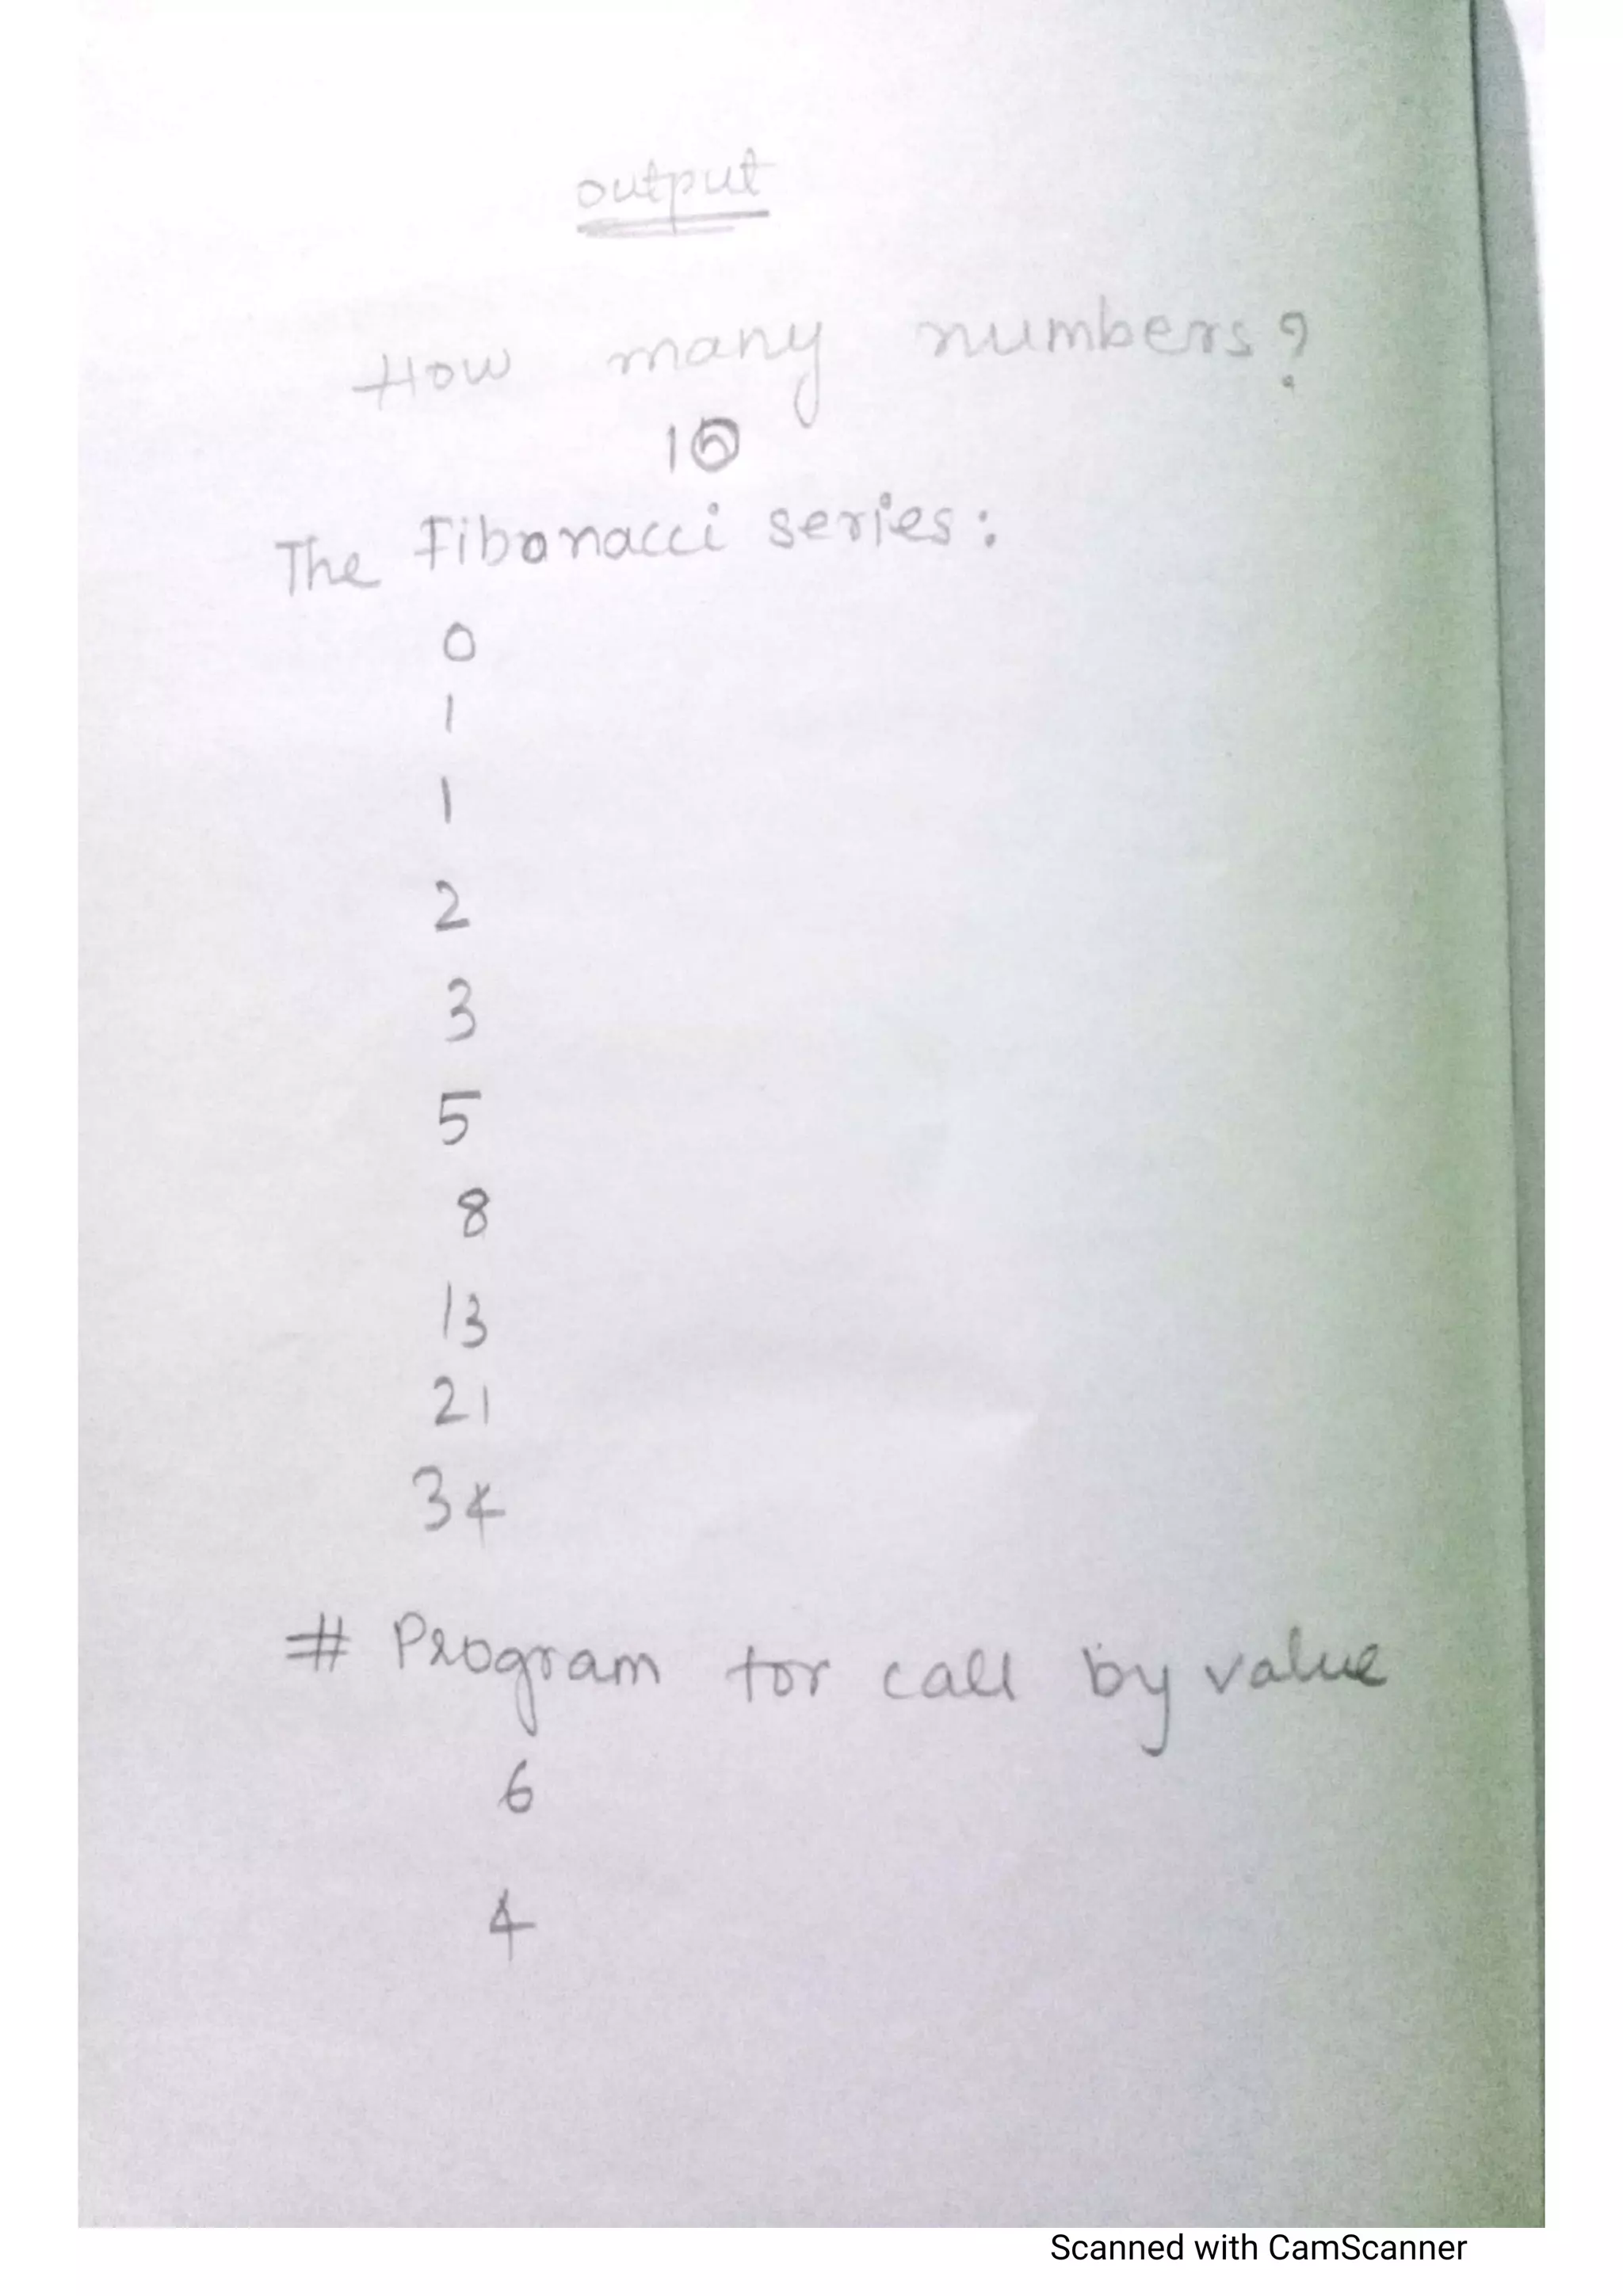 output
How many numbers?
10
The Fibonacci series:
0
1
1
2
3
5
8
13
21
34
# Program for call by value
6
4
Scanned with CamScanner